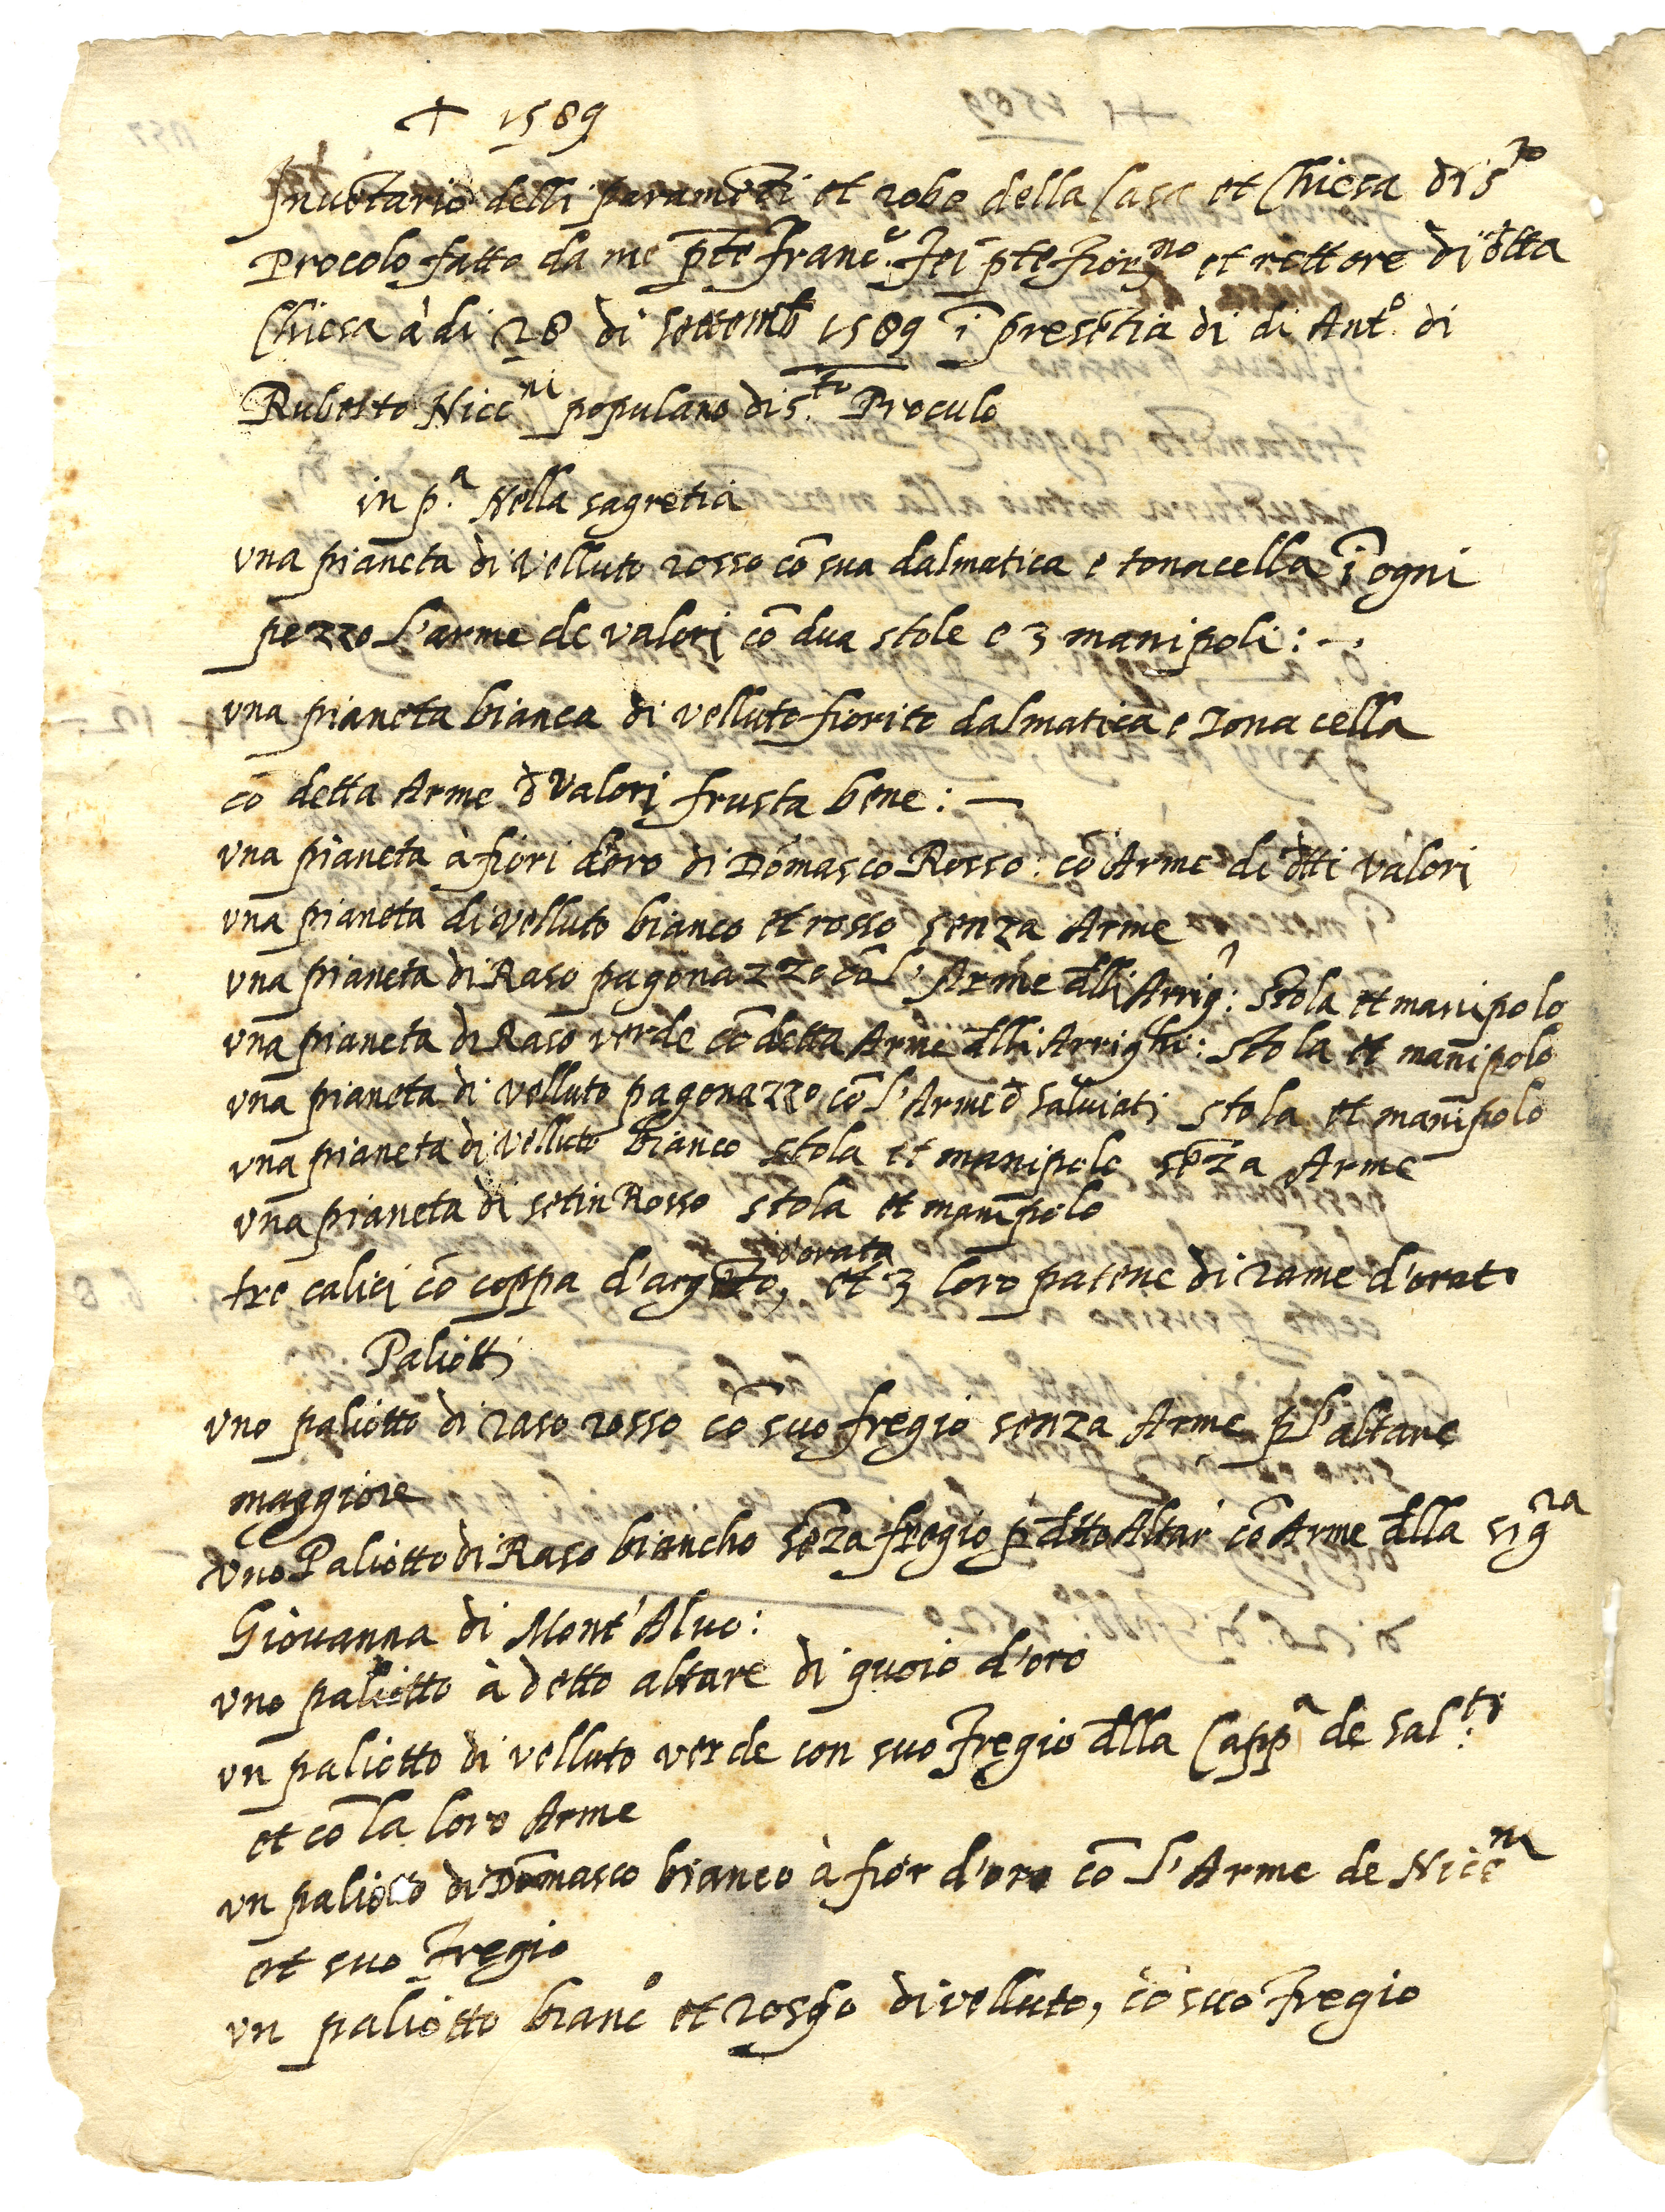 + 1589
Inuētario delli paramēti et robe della Casa et Chiesa di s.to
Procolo fatto da me p̄te Franc.o Fei p̄te Fior.no et rettore di d̄tta
Chiesa à di 28 di settemb 1589 ī presētia di di Ant.o di
Ruberto Nicc.ni populano di s.to Proculo
in p.a Nella sagretia
vna pianeta di Velluto rosso cō sua dalmatica e tonacella ī ogni
pezzo l'arme de valori cō dua stole e 3 manipoli: -
vna pianeta bianca di velluto fiorito dalmatica e Tonacella
cō detta Arme d̄ Valori frusta bene: —
vna pianeta à fiori d'oro di Domasco Rosso: cō Arme di d̄tti valori
vna pianeta di velluto bianco et rosso senza Arme
vna pianeta di Raso pagonazzo cō l'Arme d̄lli Arrig: stola et manipolo
vna pianeta di Raso verde cō detta Arme d̄lli Arrighi: stola et manipolo
vna pianeta di velluto pagonazzo cō l'Arme d̄ Saluiati stola et manipolo
vna pianeta di velluto bianco stola et manipolo sēza Arme
vna pianeta di setin Rosso stola et manipolo
dorata
tre calici cō coppa d'argēto, et 3 loro patene di rame d'orato
Paliotti
vno paliotto di raso rosso cō suo fregio senza Arme p̄ l'altare
maggiore
vno Paliotto di Raso biancho sēza fregio p̄ d̄tto Altar cō Arme d̄lla sig.ra
Giouanna di Mont'Aluo:
vno paliotto à detto altare di quoio d'oro
vn paliotto di velluto verde con suo Fregio d̄lla Capp.a de Sal.ti
et cō la loro Arme
vn paliotto di Domasco bianco à fior d'oro cō l'Arme de Nicc.ni
et suo Fregio
vn paliotto bianc.o et rosso di velluto, cō suo Fregio